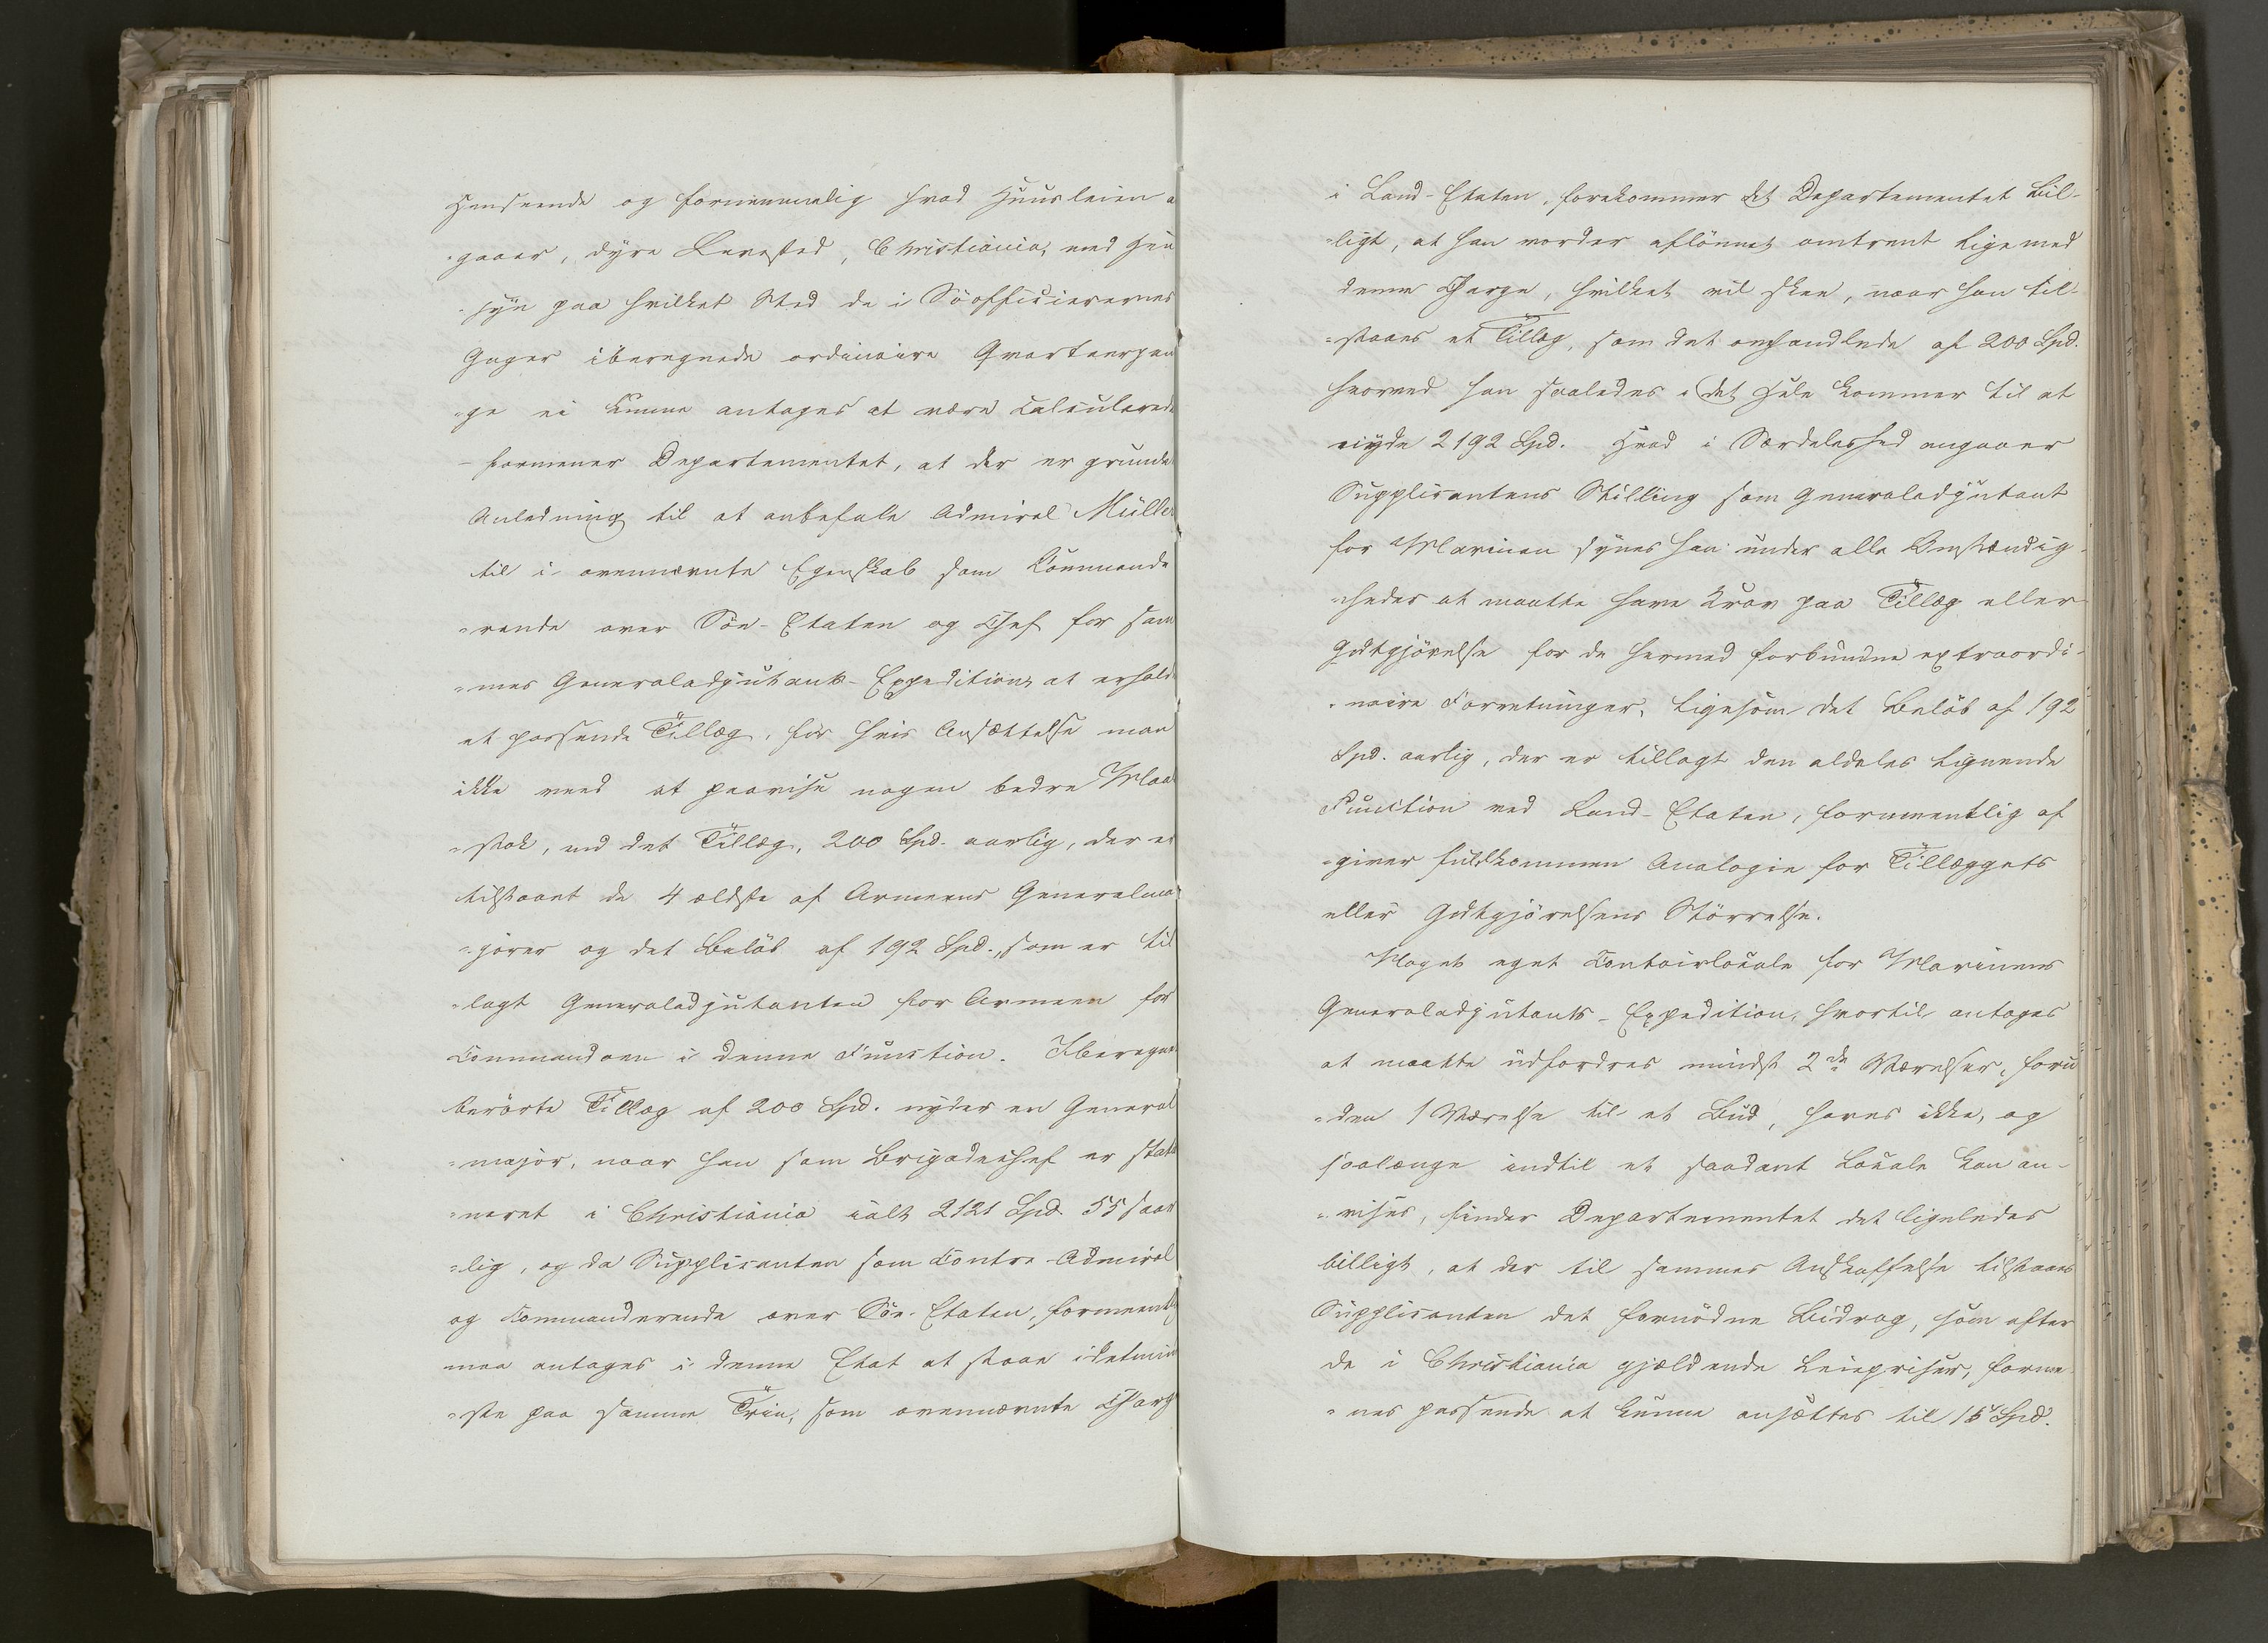 Henseende og fornemmelig hvad Huusleien a
-gaaer, dyre Levested, Christiania, med Hen
-syn paa hvilket Sted de i Söofficierernes
Gager iberegnede ordinaire Qvarteerpen
-ge ei kunne antages at være calculerede
- formener Departementet, at der er grundet
Anledning til at anbefale Admiral Müller
til i ovennævnte Egenskab som Commande
-rende over Söe-Etaten og Chef for sam
-mes Generaladjutant-Expedition, at erholde
et passende Tillæg, for hvis Ansættelse man
ikke veed at paavise nogen bedre Maal
-stok, end det Tillæg, 200 Spd. aarlig, der er
tilstaaet de 4 ældste af Armeens Generalma
-jorer og det Beløb af 192 Spd., som er til
-lagt Generaladjutanten for Armeen for
Commandoen i denne Function. Iberegnet
berörte Tillæg af 200 Spd. nyder en General
-major, naar han som Brigadechef er statio
-neret i Christiania ialt 2121 Spd. 55 s aar
-lig, og da Supplicanten som Contre-Admiral
og Commanderende over Söe-Etaten, formeentlig
maa antages i denne Etat at staae idetmind
-ste paa samme Trin, som ovennævnte Charge
i Land-Etaten, forekommer det Departementet bil-
-ligt, at han vorder aflönnet omtrent lige med
denne Charge, hvilket vil skee, naar han til-
-staaes et Tillæg, som det omhandlede af 200 Spd.
hvorved han saaledes i det Hele kommer til at
nyde 2192 Spd. Hvad i Særdeleshed angaaer
Supplicantens Stilling som Generaladjutant
for Marinen synes han under alle Omstændig-
-heder at maatte have Krav paa Tillæg eller
Godtgjörelse for de hermed forbundne extraordi-
-naire Forretninger, ligesom det Belöb af 192
Spd. aarlig, der er tillagt den aldeles lignende
Function ved Land-Etaten, formeentlig af
-giver fuldkommen Analogie for Tillæggets
eller Godtgjörelsens Störrelse.
Noget eget Contoirlocale for Marinens
Generaladjutants-Expedition, hvortil antages
at maatte udfordres mindst 2de Værelser, foru
-den 1 Værelse til et Bud, haves ikke, og
saalænge indtil et saadant Locale kan an-
-vises, finder Departementet det ligeledes
billigt, at der til sammes Anskaffelse tilstaaes
Supplicanten det fornödne Bidrag, som efter
de i Christiania gjældende Leiepriser, forme
-nes passende at kunne ansættes til Spd.